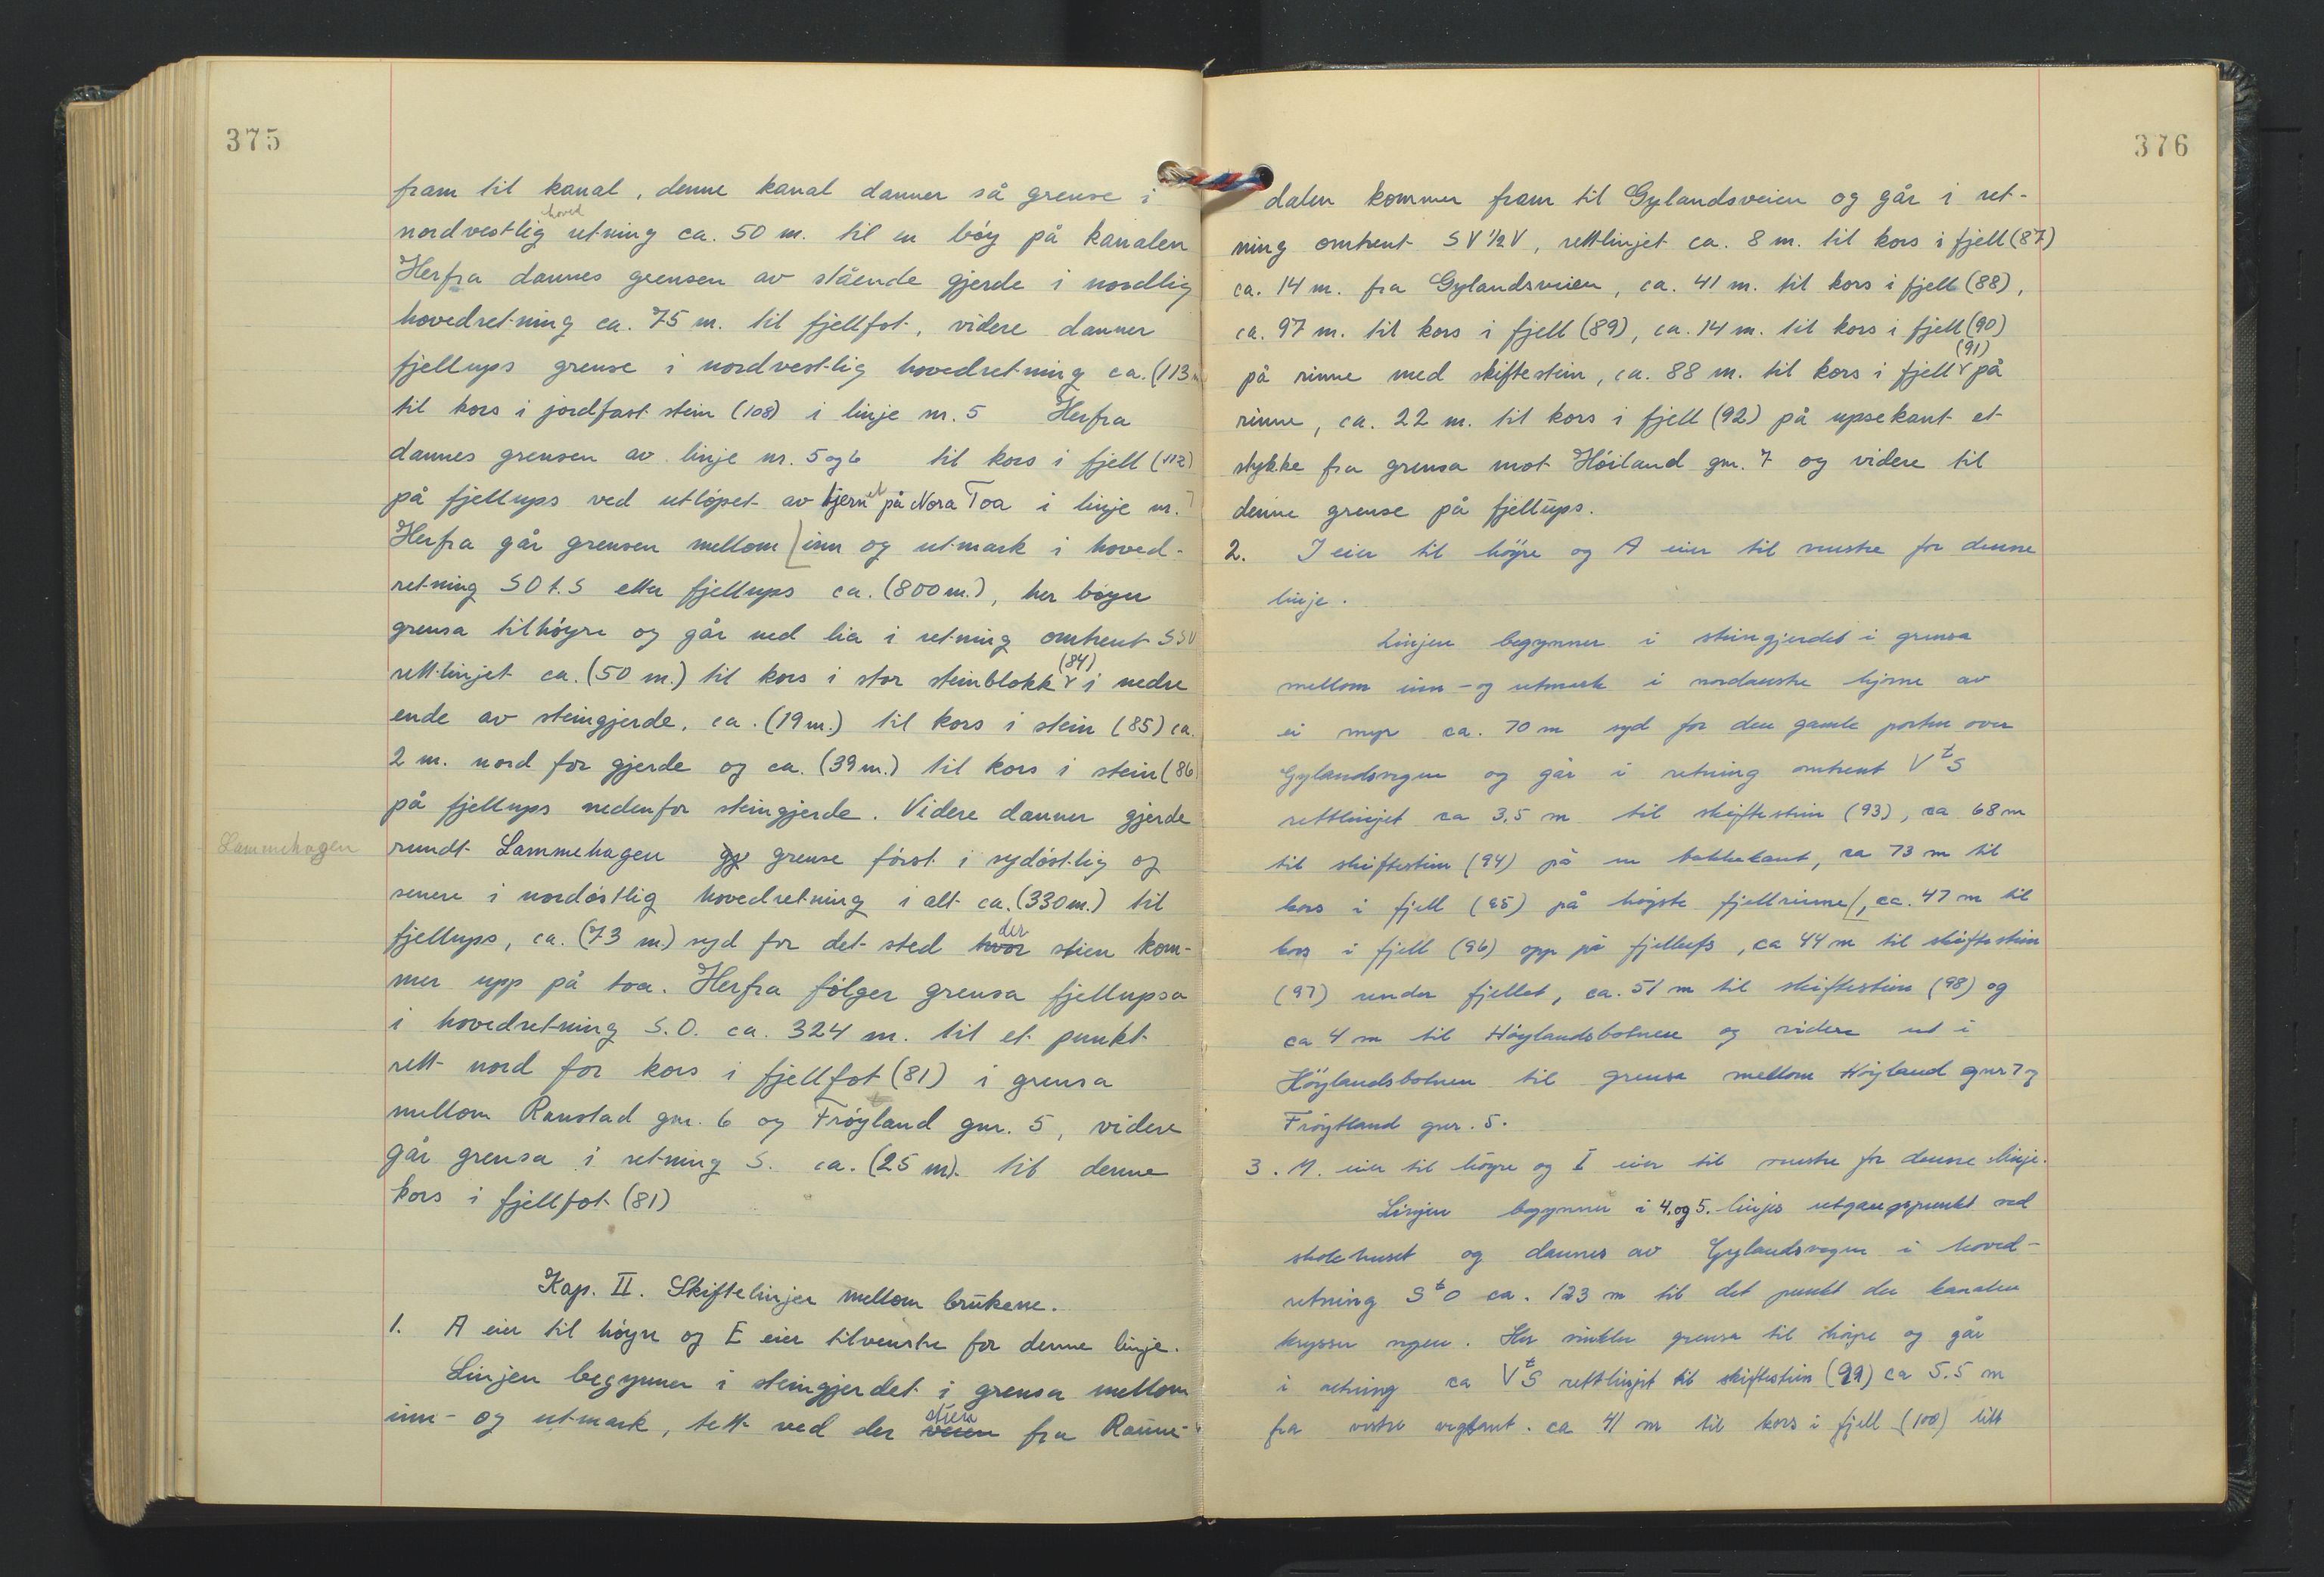 375
fram til kanal, denne kanal danner så grense i
hoved
nordvestlig retning ca. 50 m. til en bøy på kanalen
Herfra dannes grensen av stående gjerde i nordlig
hovedretning ca. 75 m. til fjellfot, videre danner
fjellups grense i nordvestlig hovedretning ca. (113 m
til kors i jordfast stein (108) i linje nr. 5 Herfra
dannes grensen av linje nr. 5 og 6 til kors i fjell (112)
på fjellups ved utløpet av tjernet på Nora Toa i linje nr. 7
Herfra går grensen mellom inn og utmark i hoved-
retning SO t. S etter fjellups ca. (800 m.), her bøyer
grensa til høyre og går ned lia i retning omtrent SSV
(84)
rettlinjet ca. (50 m.) til kors i stor steinblokk i nedre
ende av steingjerde, ca. (19 m.) til kors i stein (85) ca.
2 m. nord for gjerde og ca. (39 m.) til kors i stein (86)
på fjellups nedenfor steingjerde. Videre danner gjerde
Lammehagen
rundt Lammehagen gje grense først i sydøstlig og
senere i nordøstlig hovedretning i alt ca. (330 m.) til
der
fjellups, ca. (73 m.) syd for det sted hvor stien kom-
mer upp på toa. Herfra følger grensa fjellupsa
i hovedretning S.O. ca. 324 m. til et punkt
rett nord for kors i fjellfot (81) i grensa
mellom Ranstad gnr. 6 og Frøyland gnr. 5, videre
går grensa i retning S. ca. (25 m). til denne
kors i fjellfot (81)
Kap. II. Skiftelinjer mellom brukene.
1. A eier til høyre og E eier tilvenstre for denne linje.
Linjen begynner i steingjerdet i grensa mellom
stien
inn- og utmark, tett ved der veien fra Ranne-
376
dalen kommer fram til Gylandsveien og går i ret-
ning omtrent SV ½ V, rettlinjet ca. 8 m. til kors i fjell (87)
ca. 14 m. fra Gylandsveien, ca. 41 m. til kors i fjell (88),
ca. 97 m. til kors i fjell (89), ca. 14 m. til kors i fjell (90)
(91)
på rinne med skiftestein, ca. 88 m. til kors i fjell på
rinne, ca. 22 m. til kors i fjell (92) på upsekant et
stykke fra grensa mot Høiland gnr. 7 og videre til
denne grense på fjellups.
2. I eier til høyre og A eier til venstre for denne
linje.
Linjen begynner i steingjerdet i grensa
mellom inn- og utmark i nordøstre hjørne av
ei myr ca. 70 m syd for den gamle porten over
Gylandsvegen og går i retning omtrent V t S
rettlinjet ca 3,5 m til skiftestein (93), ca 68 m
til skiftestein (94) på en bakkekant, ca 73 m til
kors i fjell (95) på høgste fjellrinne, ca. 47 m til
kors i fjell (96) opp på fjellufs, ca 44 m til skiftestein
(97) under fjellet, ca. 51 m til skiftestein (98) og
ca 4 m til Høylandsbotnen og videre ut i
Höylandsbotnen til grensa mellom Høyland gnr 7 og
Frøytland gnr. 5.
3. M. eier til høyre og I eier til venstre for denne linje.
Linjen begynner i 4. og 5. linjes utgangspunkt ved
skolehuset og dannes av Gylandsvegen i hoved-
retning S t O ca. 123 m til det punkt der kanalen
krysser vegen. Her vinkler grensa til høyre og går
i retning ca V t S rettlinjet til skiftestein (99) ca 5.5 m
fra vestre vegkant. ca 41 m til kors i fjell (100) litt